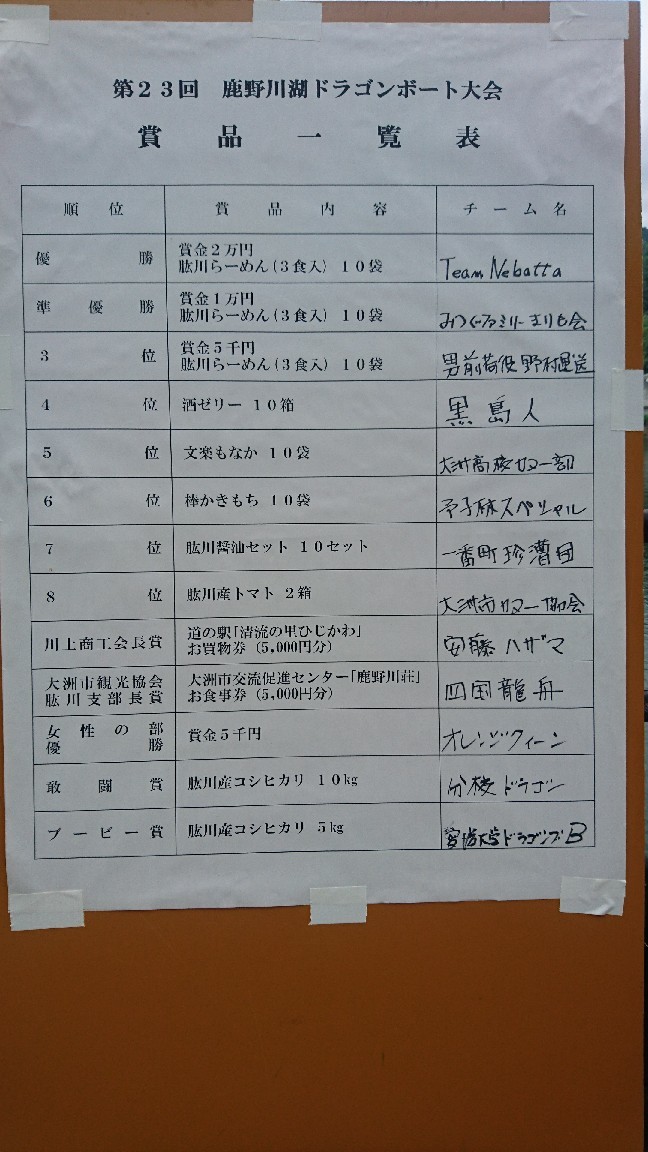 第23回 鹿野川湖ドラゴンボート大会
賞品一覧表
順位 賞品内容 チーム名
優勝 賞金2万円
肱川らーめん(3食入) 10袋 Team Nebatta
準優勝 賞金1万円
肱川らーめん(3食入) 10袋 みつぐファミリーまりも会
3位 賞金5千円
肱川らーめん(3食入) 10袋 男前荷役野村運送
4位 酒ゼリー 10箱 黒島人
5位 文楽もなか 10袋 大洲高校カヌー部
6位 棒かきもち 10袋 スペシャル
7位 肱川醤油セット 10セット 一番町珍漕団
8位 肱川産トマト 2箱 大洲市カヌー協会
川上商工会長賞 道の駅「清流の里ひじかわ」
お買物券(5,000円分) 安藤ハザマ
大洲市観光協会 大洲市交流促進センター「鹿野川荘」
肱川支部長賞 お食事券(5,000円分) 四国龍舟
女性の部
優勝 賞金5千円 オレンジクィーン
敢闘賞 肱川産コシヒカリ 10kg 分校ドラゴン
ブービー賞 肱川産コシヒカリ 5kg ドラゴンズB